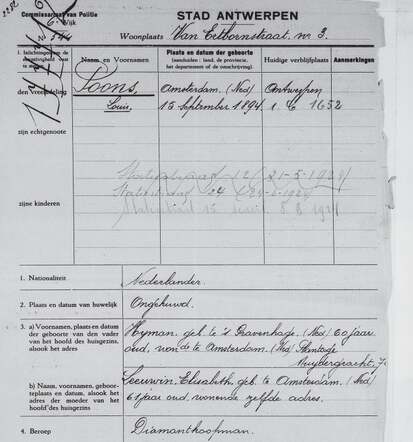 Commissariaat van Politie
6e Wijk
STAD ANTWERPEN
Woonplaats Van Eethornstraat, nr 3.
Naam en Voornamen
Plaats en datum der geboorte
(aanduiden: land, de provincie,
het departement of de omschrijving).
Huidige verblijfplaats
Aanmerkingen
den Vreemdeling
Loons,
Louis,
Amsterdam. (Ned)
15 September 1894.
Antwerpen
1652
zijn echtgenoote
zijne kinderen
1. Nationaliteit
Nederlander.
2. Plaats en datum van huwelijk
Ongehuwd.
3. a) Voornamen, plaats en datum
der geboorte van den vader
van het hoofd des huisgezins,
alsook het adres
Hyman, geb. te 's Gravenhage. (Ned) 60 jaar
oud, won de te Amsterdam. (Ned)
b) Naam, voornamen, geboor-
teplaats en datum, alsook
het adres der moeder van het
hoofd des huisgezins
Leeuwin, Elisabeth, geb. te Amsterdam. (Ned)
61 jaar oud, wonende zelfde adres.
4. Beroep
Diamantkoopman.